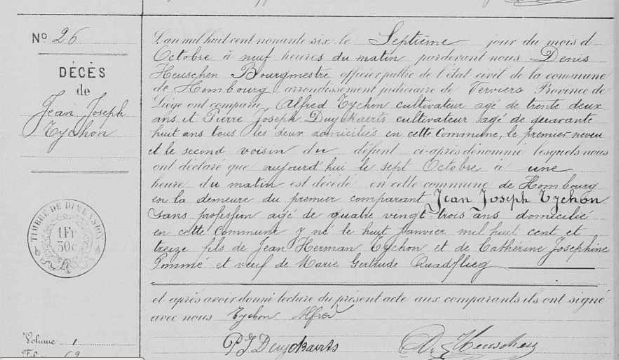 N° 26
DÉCÈS
de
Jean Joseph
Tychon
TIMBRE DE DIMENSION
1 Fr
30c
L'an mil huit cent nonante six le Septième jour du mois d
Octobre à neuf heures du matin pardevant nous Denis
Heuschen Bourgmestre officier public de l'état civil de la commune
de Hombourg arrondissement judiciaire de Verviers Province de
Liège ont comparu Alfred Tychon cultivateur agé de trente deux
ans et Pierre Joseph Duyckaerts cultivateur agé de quarante
huit ans tous les deux domiciliés en cette Commune, le premier neveu
et le second voisin du défunt ci-après dénommé lesquels nous
ont déclaré que aujourd'hui le sept Octobre à une
heure du matin est décédé en cette commune de Hombourg
en la demeure du premier comparant Jean Joseph Tychon
sans profession agé de quatre vingt trois ans domicilié
en cette Commune y né le huit Janvier mil huit cent et
treize fils de Jean Herman Tychon et de Catherine Josephine
Pommé et veuf de Marie Gertrude Quadflieg
et après avoir donné lecture du présent acte aux comparants ils ont signé
avec nous Tychon Alfred
PJ Duyckaerts
D. Heuschen
Volume 1